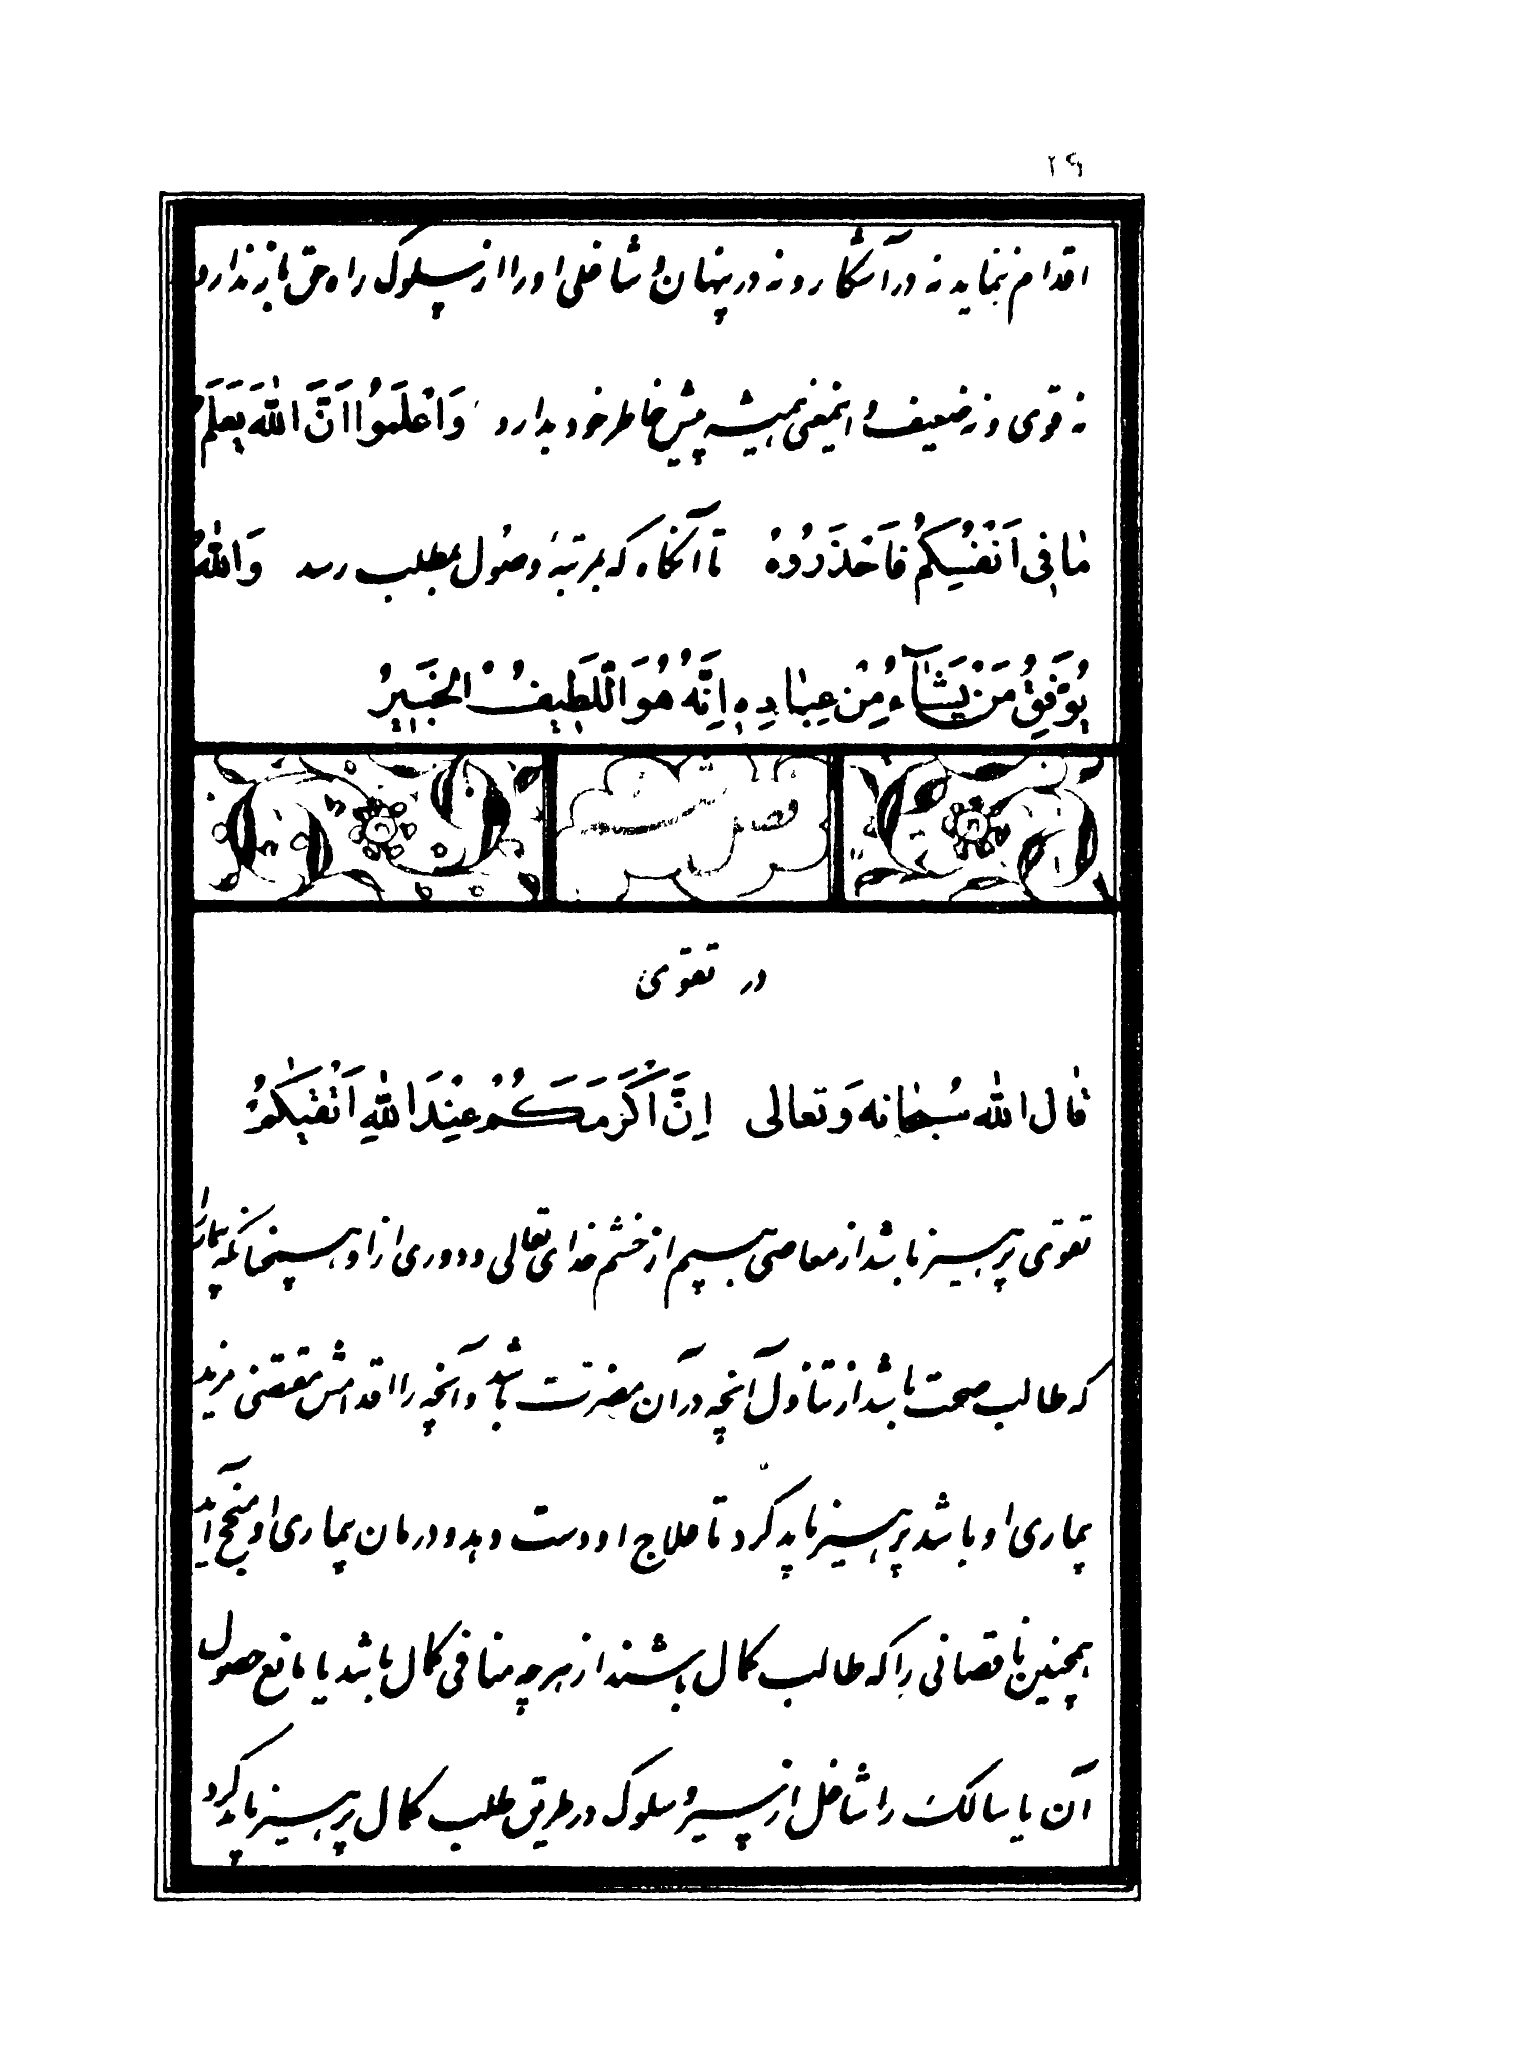 ۲۹
اقدام ننماید نه در آشکار و نه در پنهان و شاغلی او را از سلوک راه حق باز ندارد
نه قوی و نه ضعیف و اینمعنی همیشه پیش خاطر خود بدارد وَاعْلَمُوا اَنَّ اللهَ یَعْلَمُ
مٰا فِی اَنْفُسِکُمْ فَاحْذَرُوهُ تا آنگاه که بمرتبهٔ وصول بمطلب رسد وَاللهُ
یُوَفِّقُ مَنْ یَشٰآءُ مِنْ عِبٰادِهِ اِنَّهُ هُوَ اللَّطِیفُ الْخَبِیرُ
فصل
در تقوی
قٰال الله سُبْحٰانه وَ تعالی اِنَّ اَکْرَمَکُمْ عِنْدَ اللهِ اَتْقٰیکُمْ
تقوی پرهیز باشد از معاصی بیم از خشم خدای تعالی و دوری از او و همچنانکه بیمار را
که طالب صحت باشد از تناول آنچه در آن مضرت باشد و آنچه را اقدامش مقتضی مزید
بیماری او باشد پرهیز باید کرد تا علاج او دست دهد و درمان بیماری او منجح آید
همچنین ناقصانی را که طالب کمال باشند از هر چه منافی کمال باشد یا مانع حصول
آن یا سالک را شاغل از سیر و سلوک در طریق طلب کمال پرهیز باید کرد